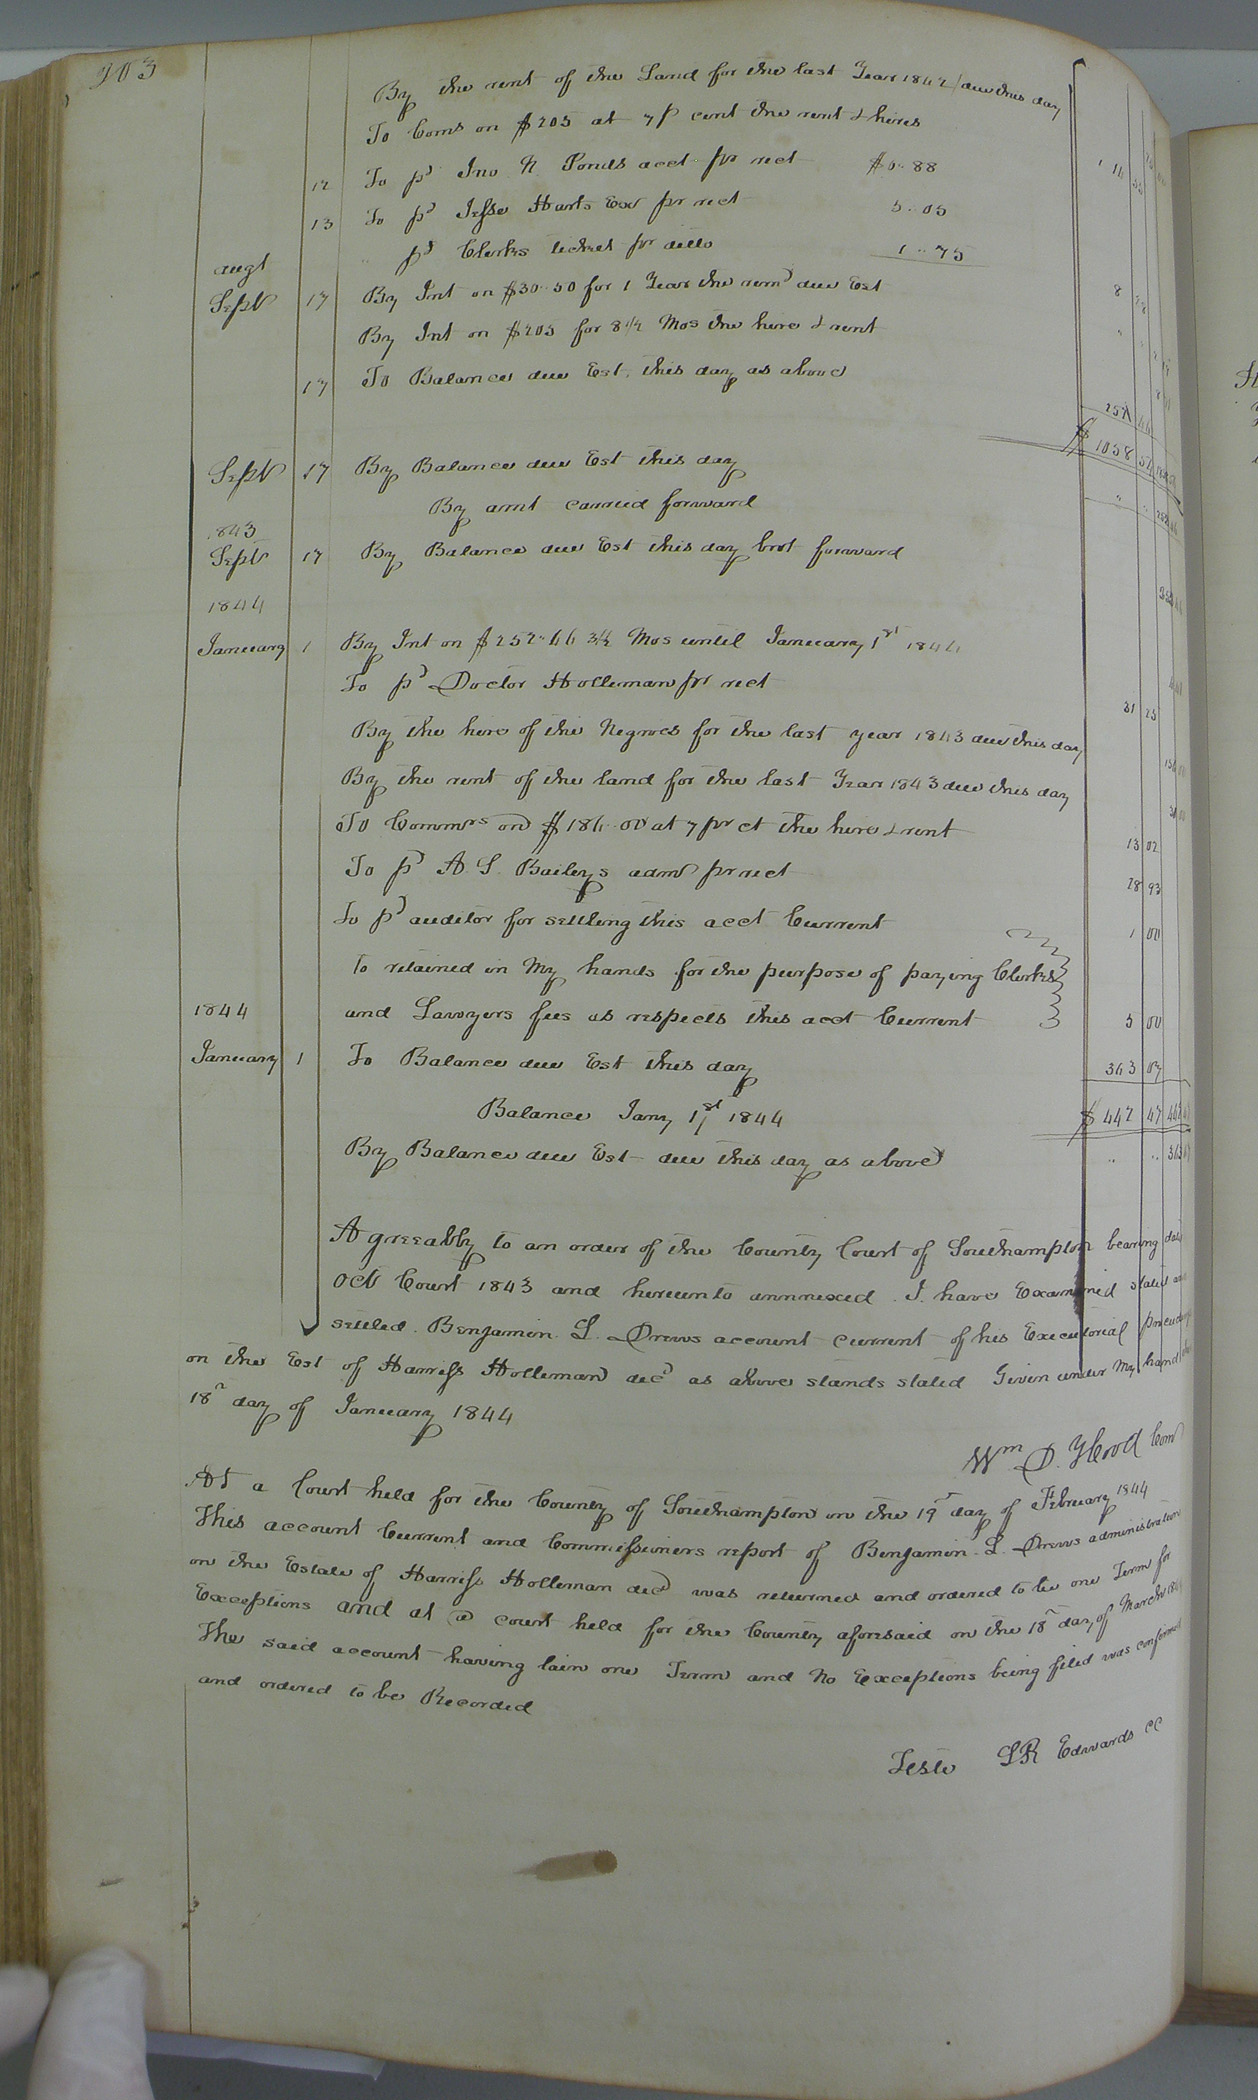 By the rent of the Land for the last Year 1842 due this day
To Coms on $205 at 7 p cent the rent & hires 14 35
12 To pd Jno N Ponds acct pr rect $0..88
13 To pd Jesse Harts Exr pr rect 5..05
" pd Clerks ticket pr ditto 1..75
augt
Sept 17 By Int on $30..50 for 1 Year the rem due Est
By Int on $205 for 8 1/2 Mos the hire & rent
17 To Balance due Est. this day as above
$ 1058
Sept 17 By Balance due Est this day
By amt carried forward
1843
Sept 17 By Balance due Est this day brot forward
1844
January 1 By Int on $252..66 3 1/2 Mos until January 1st 1844
To pd Doctor Holleman pr rect 31 25
By the hire of the Negroes for the last year 1843 due this day
By the rent of the land for the last Year 1843 due this day
To Commrs on $186..00 at 7 pr ct the hire & rent 13 02
To pd A. S. Baileys adm pr rect 28 93
To pd auditor for settling this acct Current 1 00
To retained in My hands for the purpose of paying Clerks
1844 and Lawyers fees as respects this acct Current 5 00
January 1 To Balance due Est this day 363 07
Balance Jany 1st 1844 $ 442 47
By Balance due Est due this day as above " " 363 07
Agreeably to an order of the County Court of Southampton bearing date
Oct Court 1843 and hereunto annnexed. I. have Examined stated and
settled. Benjamin. L. Drews account current of his Executorial
on the Est of Harriss Holleman decd as above stands stated Given under My hand
18th day of January 1844
Wm D. Hood Com
At a Court held for the County of Southampton on the 19th day of February 1844
This account Current and Commissioners report of Benjamin. L. Drews administration
on the Estate of Harriss Holleman decd was returned and ordered to lie one Term for
Exceptions and at a court held for the County aforesaid on the 18th day of March 1844
The said account having lain one Term and No Exceptions being filed was confirmed
and ordered to be Recorded
Teste LR Edwards CC